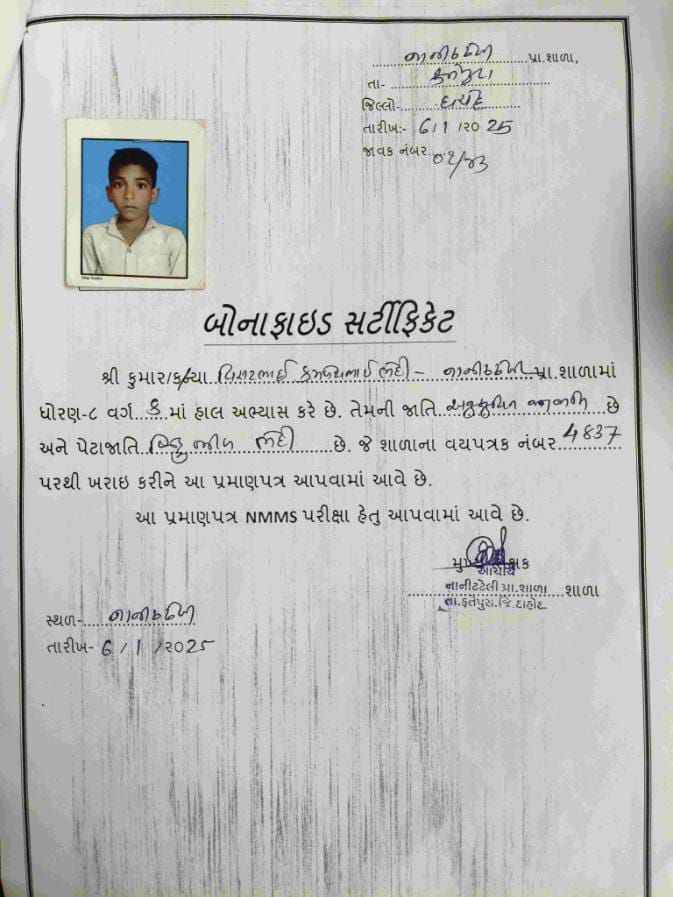 નાનીઢઢેલી પ્રા.શાળા,
તા- ફતેપુરા
જિલ્લો- દાહોદ
તારીખ:- 6/1/2025
જાવક નંબર.
બોનાફાઇડ સર્ટીફિકેટ
શ્રી કુમાર/કન્યા પ્રા.શાળામાં
ધોરણ-૮ વર્ગ ક માં હાલ અભ્યાસ કરે છે. તેમની જાતિ અનુસુચિત જનજાતિ છે
અને પેટાજાતિ હિન્દુ ભીલ છે. જે શાળાના વયપત્રક નંબર 4837
પરથી ખરાઇ કરીને આ પ્રમાણપત્ર આપવામાં આવે છે.
આ પ્રમાણપત્ર NMMS પરીક્ષા હેતુ આપવામાં આવે છે.
આચાર્ય
નાનીઢઢેલી પ્રા.શાળા શાળા
તા.ફતેપુરા.જિ.દાહોદ
સ્થળ- નાનીઢઢેલી
તારીખ- 6/1/2025